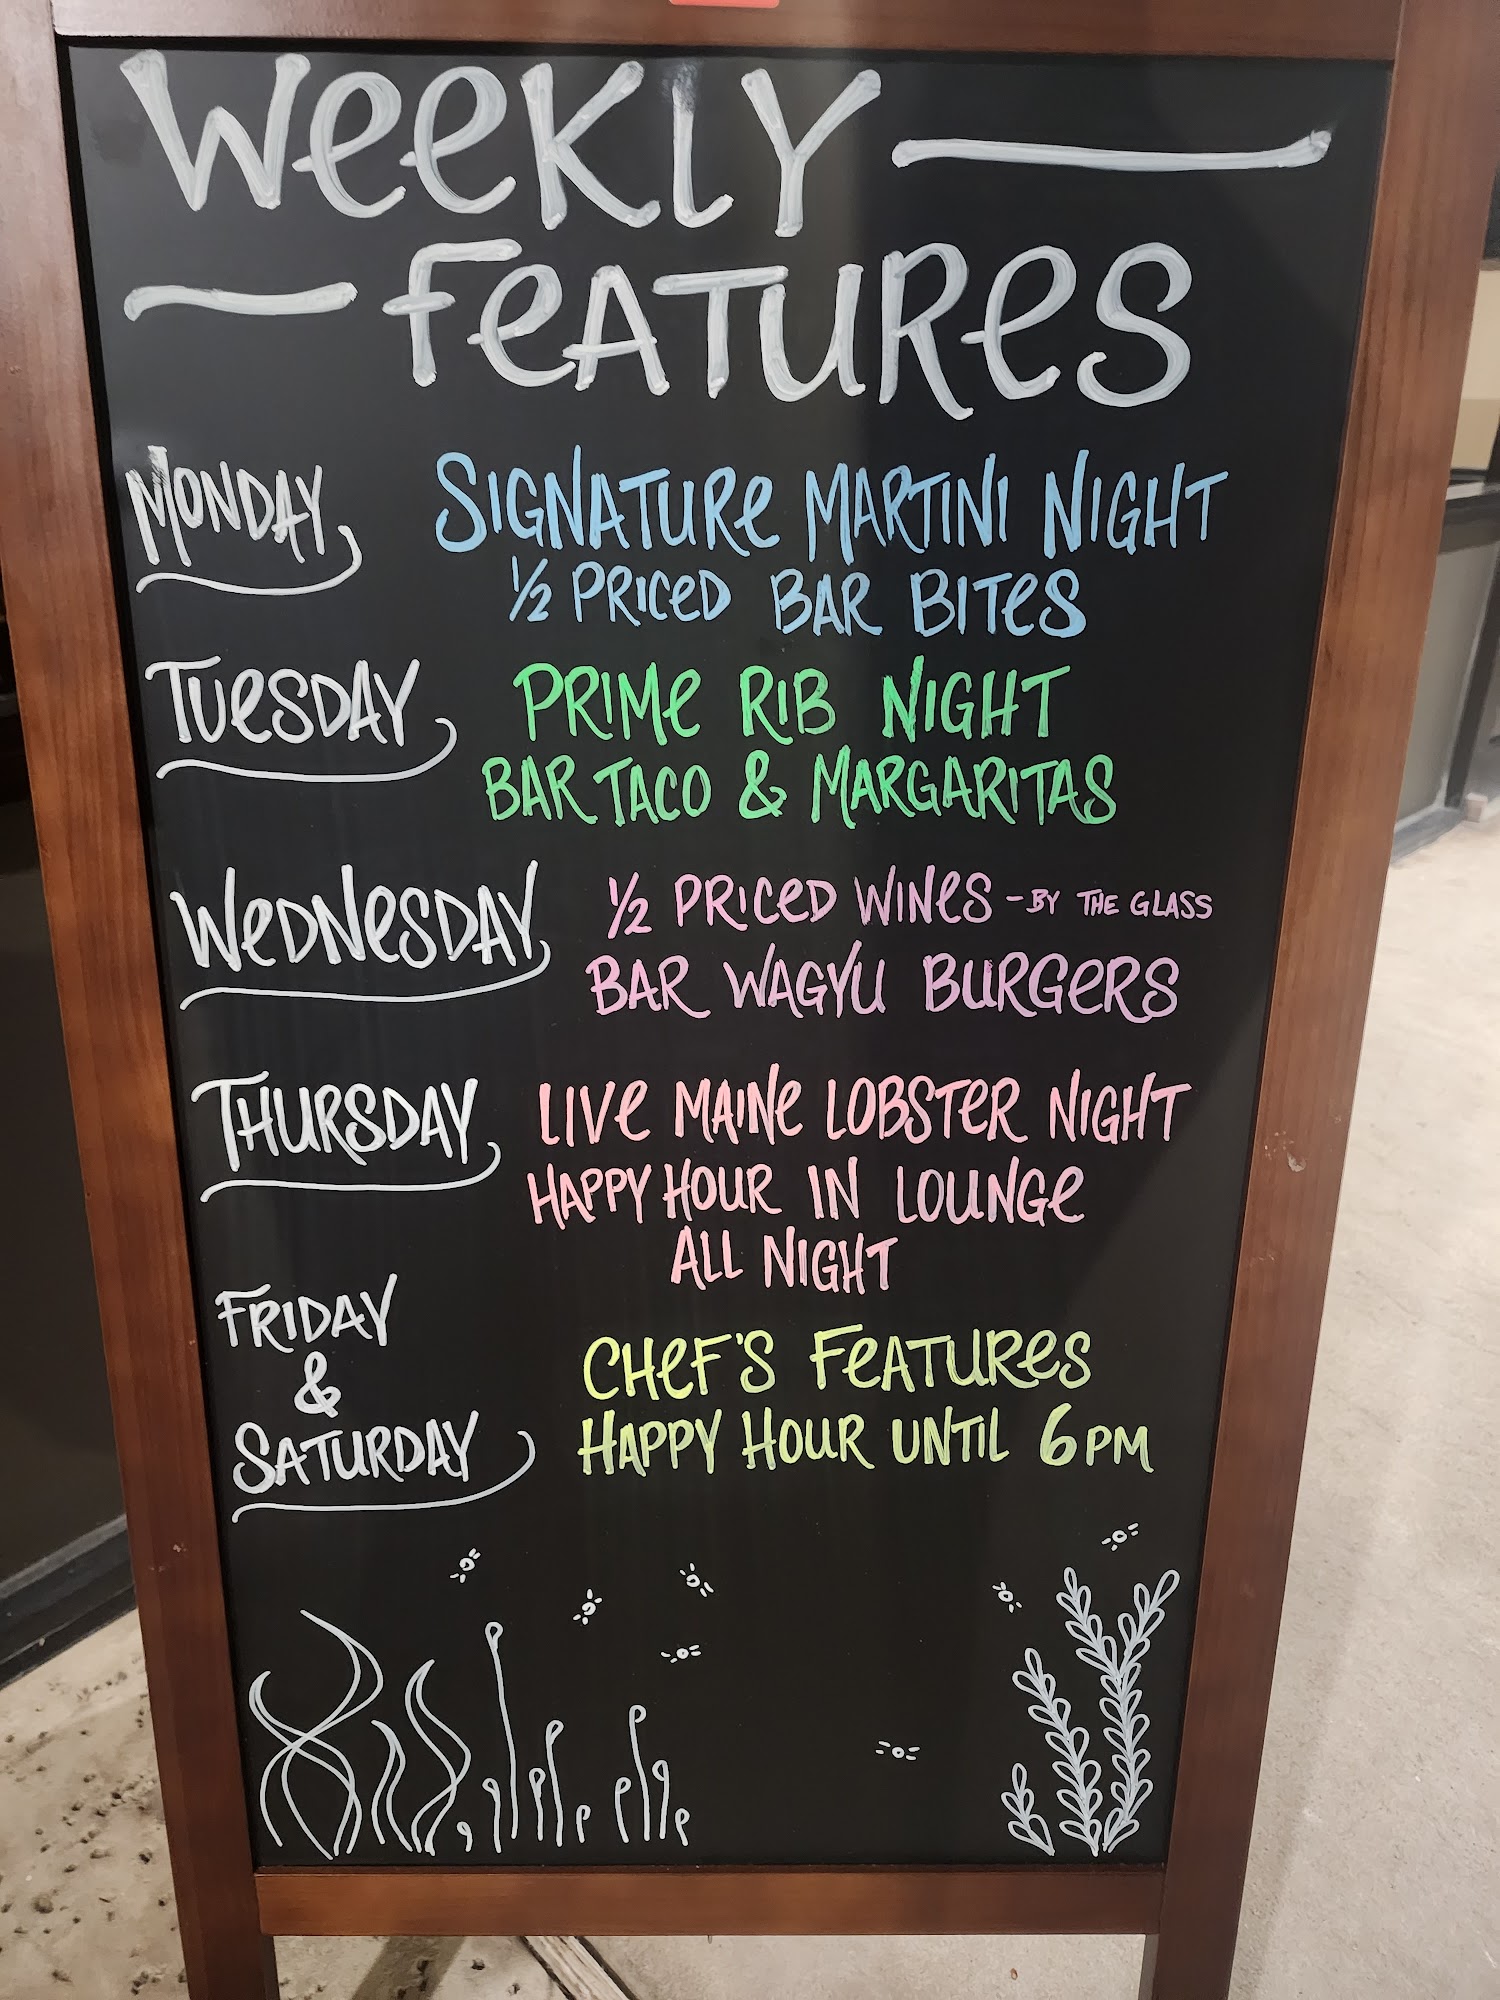 WEEKLY
FEATURES
MONDAY
SIGNATURE MARTINI NIGHT
1/2 PRICED BAR BITES
TUESDAY
PRIME RIB NIGHT
BAR TACO & MARGARITAS
WEDNESDAY
1/2 PRICED WINES - BY THE GLASS
BAR WAGYU BURGERS
THURSDAY
LIVE MAINE LOBSTER NIGHT
HAPPY HOUR IN LOUNGE
ALL NIGHT
FRIDAY
&
SATURDAY
CHEF'S FEATURES
HAPPY HOUR UNTIL 6PM